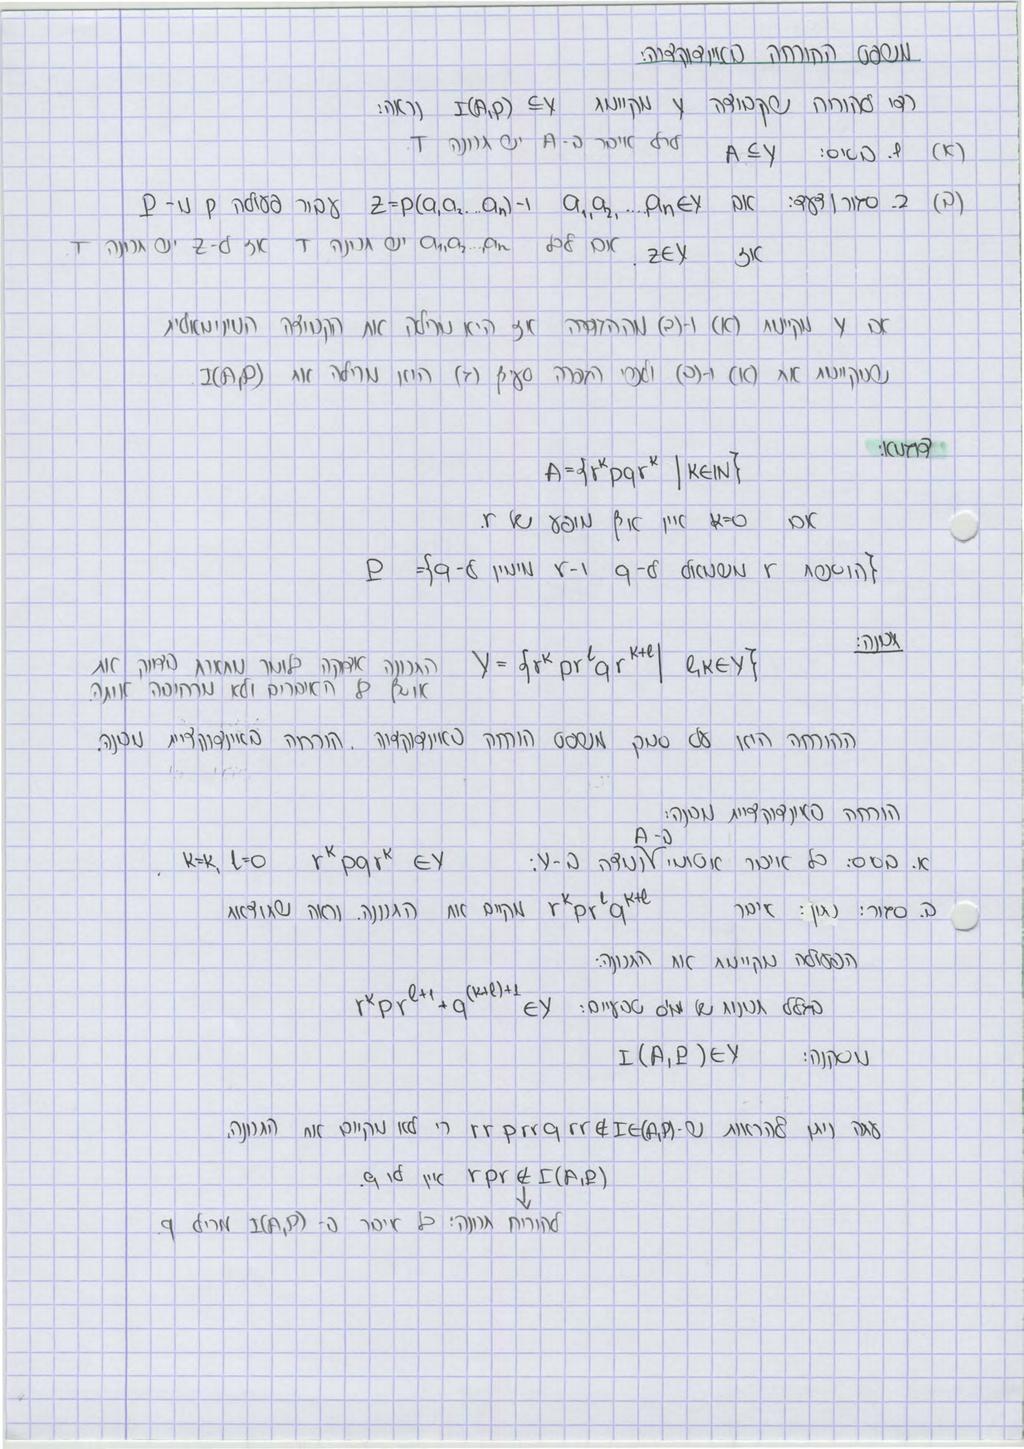 משפט ההוכחה באינדוקציה:
כדי להוכיח שקבוצה Y מקיימת I(A,P) ⊆ Y נראה:
(א) 1. בסיס: A ⊆ Y לכל איבר ב-A יש תכונה T.
(ב) 2. סגור/צעד: אם a₁,a₂,...,aₙ∈Y ו-z=p(a₁,a₂...aₙ) עבור פעולה p מ-P
אז z∈Y. אם לכל a₁,a₂...aₙ יש תכונה T אז ל-z יש תכונה T.
אם Y מקיימת (א) ו-(ב) מההגדרה אז היא מכילה את הקבוצה המינימאלית
שמקיימת את (א) ו-(ב) ולפי הגדרה סעיף (ג) היא מכילה את I(A,P).
דוגמא:
A={rᵏpqrᵏ | K∈ℕ}
אם K=0 אין אף מופע של r.
{הוספת r משמאל ל-q ו-r מימין ל-q}= P
טענה: Y = {rᵏprˡqrᵏ⁺ˡ | l,K∈Y} התכונה אדוקה כלומר מתארת בדיוק את
אוסף כל האיברים ולא מרחיבה אותה.
ההוכחה היא על סמך משפט הוכחה באינדוקציה. הוכחה באינדוקציית מבנה.
הוכחה באינדוקציית מבנה:
א. בסיס: כל איבר אטומי ב-A נמצא ב-Y: rᵏpqrᵏ ∈Y K=K, l=0
ב. סגור: נתון: איבר rᵏprˡqᵏ⁺ˡ מקיים את התכונה. נראה שתוצאת
הפעולה מקיימת את התכונה:
בגלל תכונות של מס' טבעיים: rᵏprˡ⁺¹+q⁽ᵏ⁺ˡ⁾⁺¹ ∈Y
מסקנה: I(A,P)∈Y
עתה ניתן להראות ש-rrprrqrr∉I∈(A,P) כי לא מקיים את התכונה.
rpr∉I(A,P) אין לו q.
↓
להוכיח תכונה: כל איבר ב-I(A,P) מכיל q.